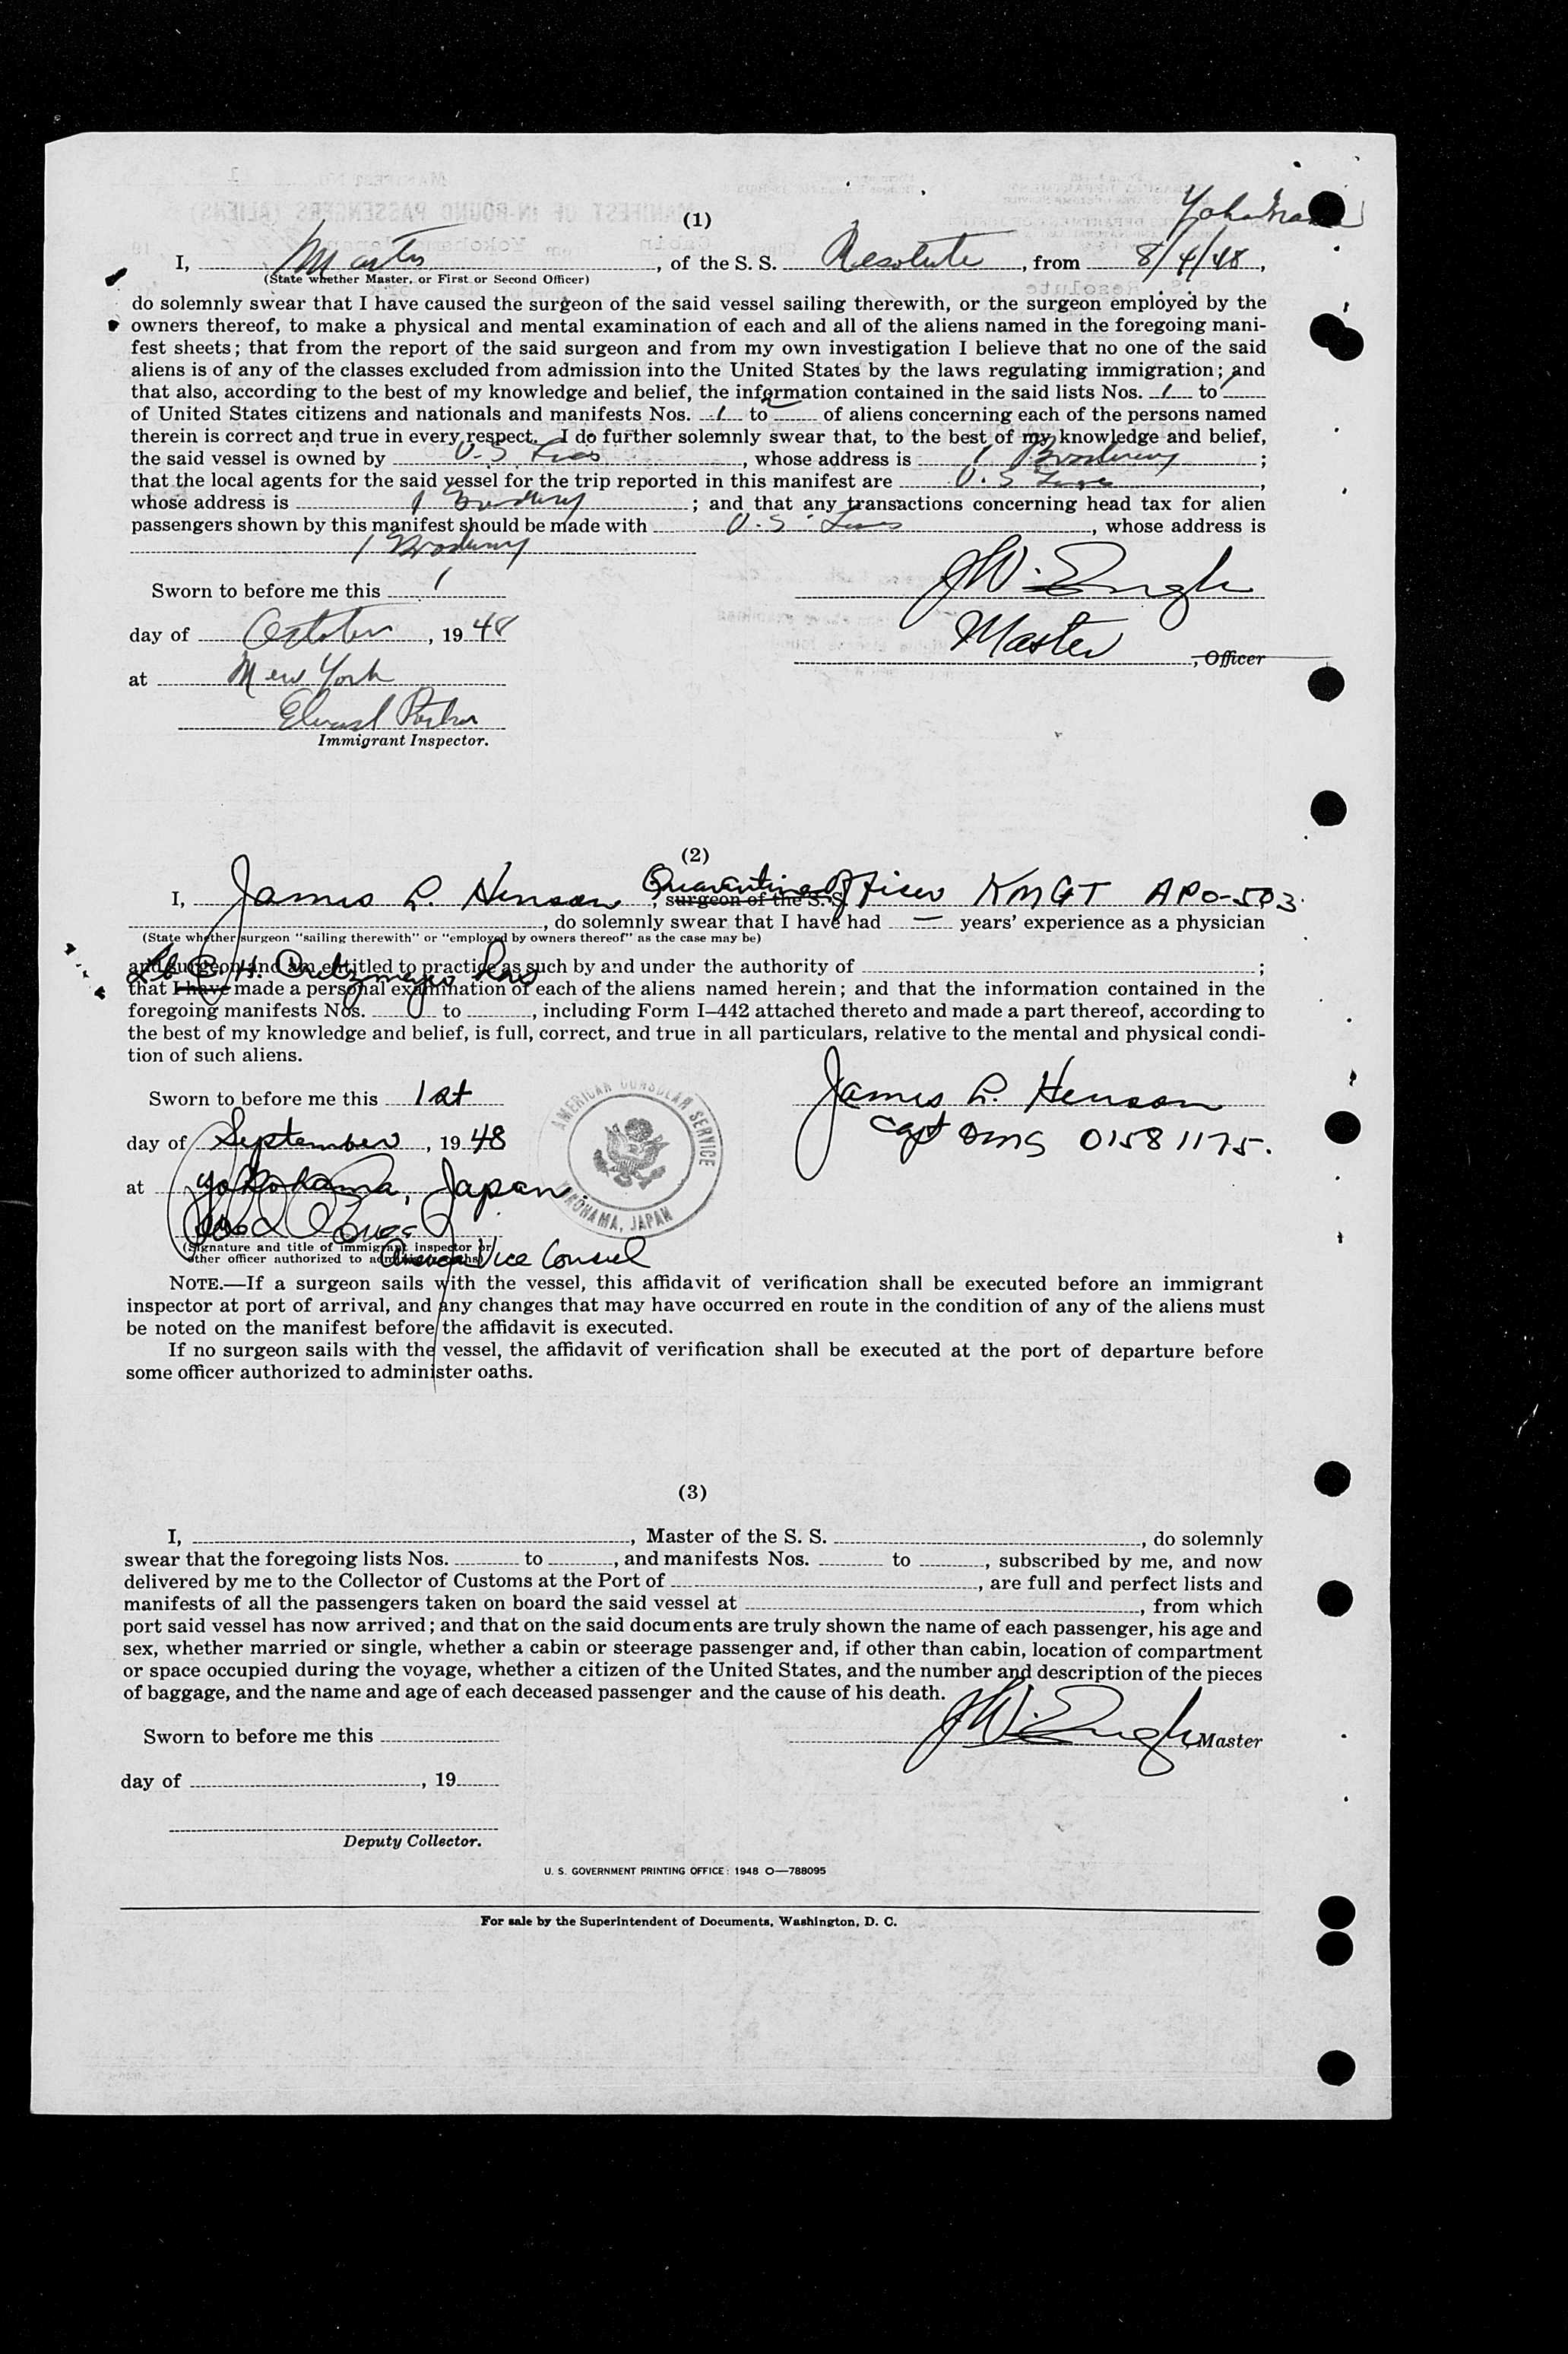 (1)
Yokohama
I, Master, of the S. S. Resolute, from 8/4/48,
(State whether Master, or First or Second Officer)
do solemnly swear that I have caused the surgeon of the said vessel sailing therewith, or the surgeon employed by the
owners thereof, to make a physical and mental examination of each and all of the aliens named in the foregoing mani-
fest sheets; that from the report of the said surgeon and from my own investigation I believe that no one of the said
aliens is of any of the classes excluded from admission into the United States by the laws regulating immigration; and
that also, according to the best of my knowledge and belief, the information contained in the said lists Nos. 1 to
of United States citizens and nationals and manifests Nos. 1 to 2 of aliens concerning each of the persons named
therein is correct and true in every respect. I do further solemnly swear that, to the best of my knowledge and belief,
the said vessel is owned by U.S Lines, whose address is 1 Broadway;
that the local agents for the said vessel for the trip reported in this manifest are U.S Lines,
whose address is 1 Broadway; and that any transactions concerning head tax for alien
passengers shown by this manifest should be made with U.S Lines, whose address is
1 Broadway
Sworn to before me this 1
day of October, 1948
Master, Officer
at New York
Immigrant Inspector.
(2)
I, James L. Henson, Quarantine Officer surgeon of the S. S. KMGT APO-503
, do solemnly swear that I have had — years' experience as a physician
(State whether surgeon "sailing therewith" or "employed by owners thereof" as the case may be)
and surgeon and am entitled to practice as such by and under the authority of ;
that I have made a personal examination of each of the aliens named herein; and that the information contained in the
foregoing manifests Nos. to , including Form I–442 attached thereto and made a part thereof, according to
the best of my knowledge and belief, is full, correct, and true in all particulars, relative to the mental and physical condi-
tion of such aliens.
Sworn to before me this 1st
James L. Henson
day of September, 1948
Capt QMS 01581175.
AMERICAN CONSULAR SERVICE
YOKOHAMA, JAPAN
at Yokohama, Japan.
(Signature and title of immigrant inspector or
other officer authorized to administer oaths)
Vice Consul
NOTE.—If a surgeon sails with the vessel, this affidavit of verification shall be executed before an immigrant
inspector at port of arrival, and any changes that may have occurred en route in the condition of any of the aliens must
be noted on the manifest before the affidavit is executed.
If no surgeon sails with the vessel, the affidavit of verification shall be executed at the port of departure before
some officer authorized to administer oaths.
(3)
I, , Master of the S. S. , do solemnly
swear that the foregoing lists Nos. to , and manifests Nos. to , subscribed by me, and now
delivered by me to the Collector of Customs at the Port of , are full and perfect lists and
manifests of all the passengers taken on board the said vessel at , from which
port said vessel has now arrived; and that on the said documents are truly shown the name of each passenger, his age and
sex, whether married or single, whether a cabin or steerage passenger and, if other than cabin, location of compartment
or space occupied during the voyage, whether a citizen of the United States, and the number and description of the pieces
of baggage, and the name and age of each deceased passenger and the cause of his death.
Sworn to before me this
, Master
day of , 19
Deputy Collector.
U. S. GOVERNMENT PRINTING OFFICE: 1948 O—788095
For sale by the Superintendent of Documents, Washington, D. C.